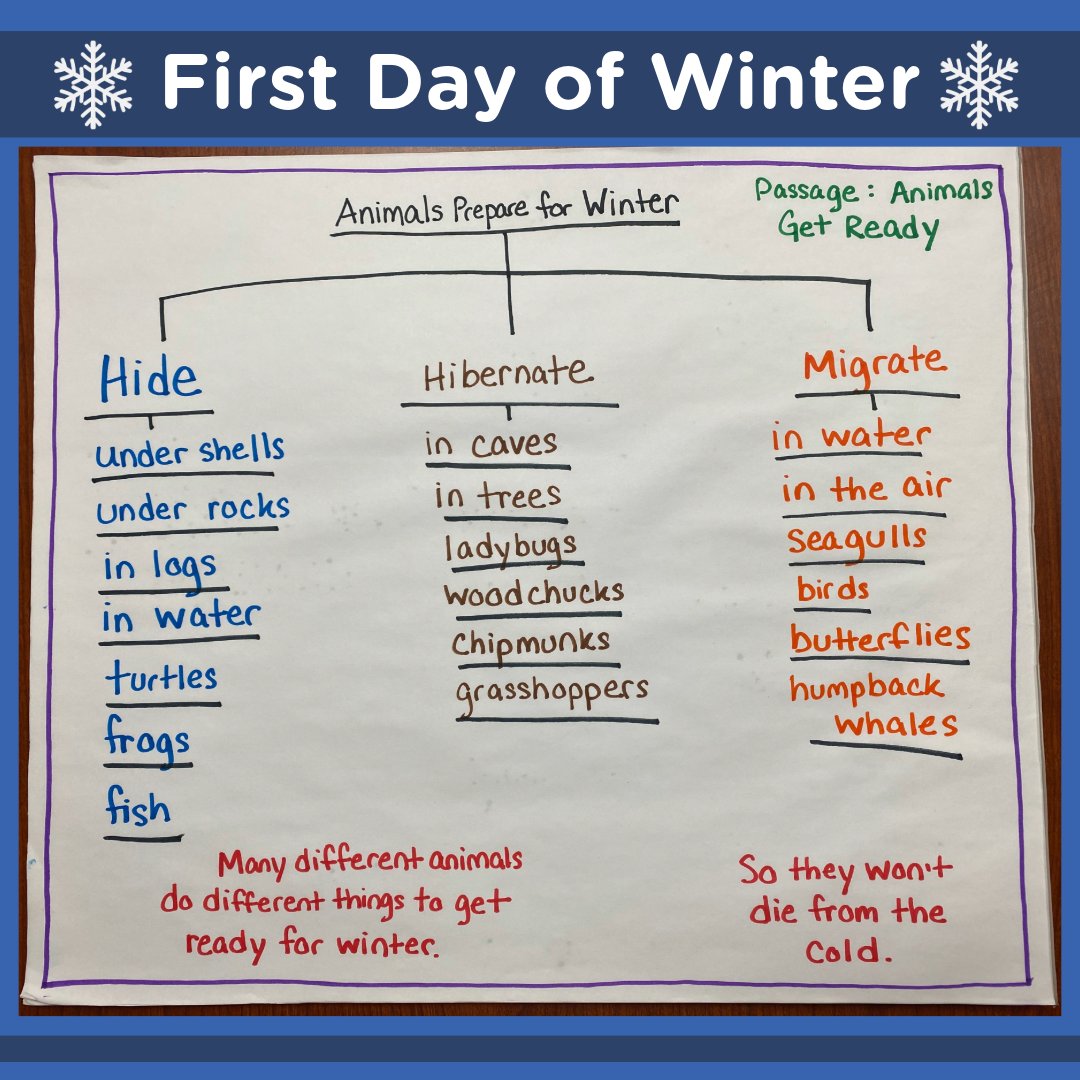 First Day of Winter
Animals Prepare for Winter
Passage: Animals
Get Ready
Hide
under shells
under rocks
in logs
in water
turtles
frogs
fish
Hibernate
in caves
in trees
ladybugs
woodchucks
chipmunks
grasshoppers
Migrate
in water
in the air
seagulls
birds
butterflies
humpback
whales
Many different animals
do different things to get
ready for winter.
So they won't
die from the
cold.